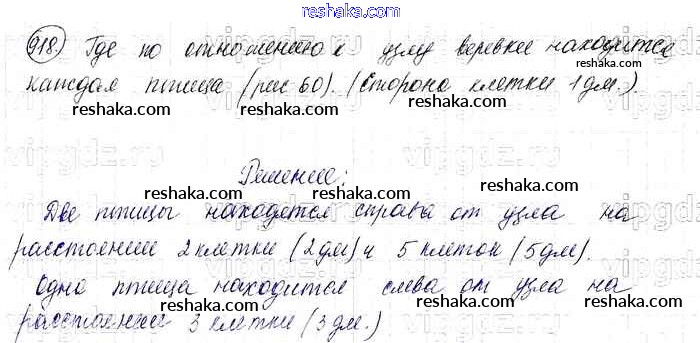 reshaka.com
918. Где по отношению к узлу веревки находится
каждая птица (рис 60). (Сторона клетки 1 дм.).
reshaka.com reshaka.com reshaka.com
Решение:
reshaka.com reshaka.com
Две птицы находятся справа от узла на
расстоянии 2 клетки (2 дм) и 5 клеток (5 дм).
reshaka.com reshaka.com reshaka.com
Одна птица находится слева от узла на
расстоянии 3 клетки (3 дм.)
reshaka.com reshaka.com